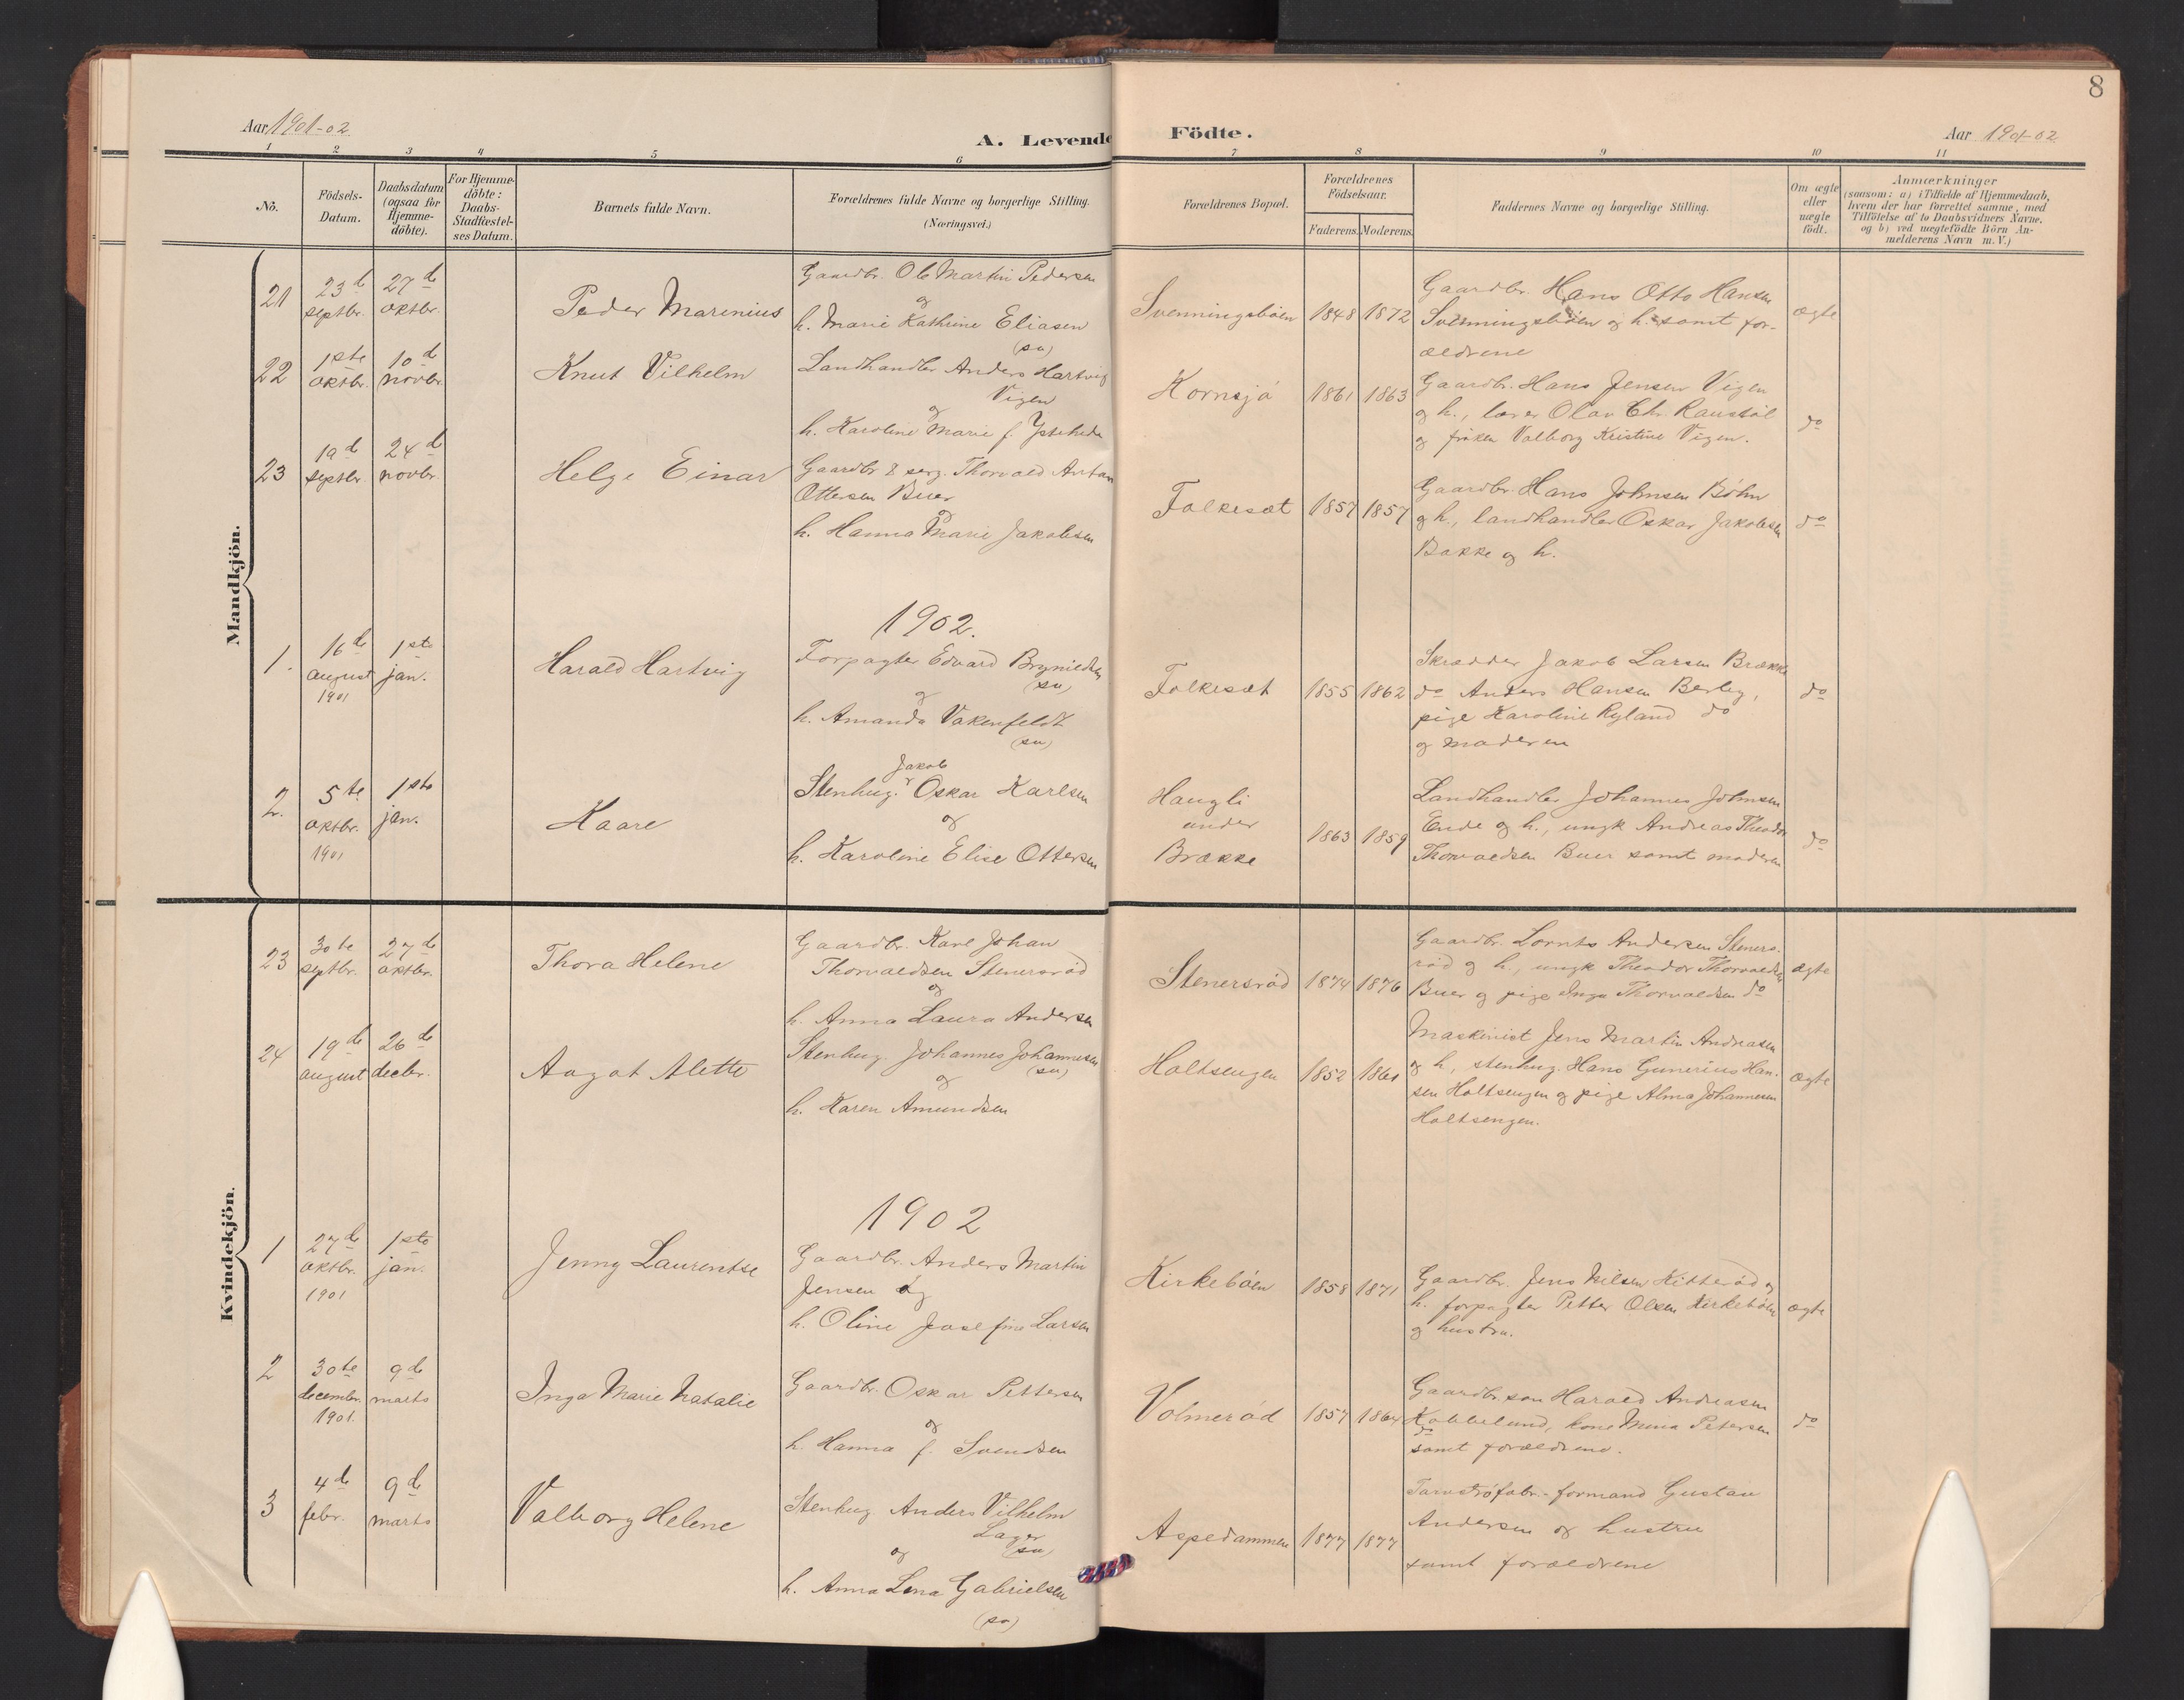 8
Aar 1901-02
A. Levende Födte.
Aar 1901-02
1 2 3 4 5 6 7 8 9 10 11
No.
Födsels-
Datum.
Daabsdatum
(ogsaa for
Hjemme-
döbte).
For Hjemme-
döbte:
Daabs-
Stadfæstel-
ses Datum.
Barnets fulde Navn.
Forældrenes fulde Navne og borgerlige Stilling.
(Næringsvei.)
Forældrenes Bopæl.
Forældrenes
Födselsaar.
Faderens. Moderens.
Faddernes Navne og borgerlige Stilling.
Om ægte
eller
uægte
födt.
Anmærkninger
(saasom: a) i Tilfælde af Hjemmedaab,
hvem der har forrettet samme, med
Tilföielse af to Daabsvidners Navne,
og b) ved uægtefödte Börn An-
melderens Navn m. V.)
Mandkjön.
21
23d
septbr.
27d
oktbr.
Peder Marinius
Gaardbr. Ole Martin Pedersen
og
h. Marie Kathrine Eliasen
(sv)
Svenningsbøen
1848 1872
Gaardbr. Hans Otto Hansen
Svenningsbøen og h. samt for-
ældrene
ægte
22
1ste
oktbr.
10d
novbr.
Knut Vilhelm
Landhandler Anders Hartvig
Vigen
og
h. Karoline Marie f. Ystehede
Kornsjø
1861 1863
Gaardbr. Hans Jensen Vigen
og h., lærer Olav Chr. Raustøl
og frøken Valborg Kristine Vigen.
do
23
19d
septbr.
24d
novbr.
Helge Einar
Gaardbr & serg. Thorvald Anton
Ottersen Buer
og
h. Hanna Marie Jakobsen
Folkesæt
1857 1857
Gaardbr. Hans Johnsen Bøhn
og h., landhandler Oskar Jakobsen
Bakke og h.
do
1902.
1.
16de
august
1901
1ste
jan.
Harald Hartvig
Forpagter Edvard Brynildsen
(sv)
og
h. Amanda Vakenfeldt
(sv)
Folkesæt
1855 1862
Skrædder Jakob Larsen Brække
do Anders Hansen Berby,
pige Karoline Ryland do
og moderen
do
2.
5te
oktbr.
1901
1ste
jan.
Kaare
Jakob
Stenhug. Oskar Karlsen
og
h. Karoline Elise Ottersen
Haugli
under
Brække
1863 1859
Landhandler Johannes Johnsen
Ende og h., ungk Andreas Theodor
Thorvaldsen Buer samt moderen
do
Kvindekjön.
23
30te
septbr.
27d
oktbr.
Thora Helene
Gaardbr. Karl Johan
Thorvaldsen Stenersrød
og
h. Anna Laura Andersen
Stenersrød
1874 1876
Gaardbr. Lornts Andersen Steners-
rød og h., ungk Theodor Thorvaldsen
Buer og pige Inga Thorvaldsen do
ægte
24
19d
august
26d
decbr.
Aagot Alette
Stenhug. Johannes Johannesen
(sv)
og
h. Karen Amundsen
Holtsengen
1852 1861
Maskinist Jens Martin Andreasen
og h, stenhug. Hans Gunerius Han-
sen Holtsengen og pige Alma Johannesen
Holtsengen.
ægte
1902
1
27de
oktbr.
1901
1ste
jan.
Jenny Laurentse
Gaardbr. Anders Martin
Jensen og
h. Oline Josefine Larsen
Kirkebøen
1858 1871
Gaardbr. Jens Nilsen Kitterød og
h. forpagter Petter Olsen Kirkebøen
og hustru.
ægte
2
30te
decembr.
1901.
9de
marts
Inga Marie Natalie
Gaardbr. Oskar Pettersen
og
h. Hanna f. Svendsen
Volmerød
1857 1864
Gaardbr.søn Harald Andreasen
Kobbelund, kone Mina Petersen
do
samt forældrene.
do
3
4de
febr.
9de
marts
Valborg Helene
Stenhug. Anders Vilhelm
Lager
(sv)
og
h. Anna Lena Gabrielsen
(sv)
Aspedammen
1877 1877
Torvstrøfabr.-formand Gustav
Andersen og hustru
samt forældrene